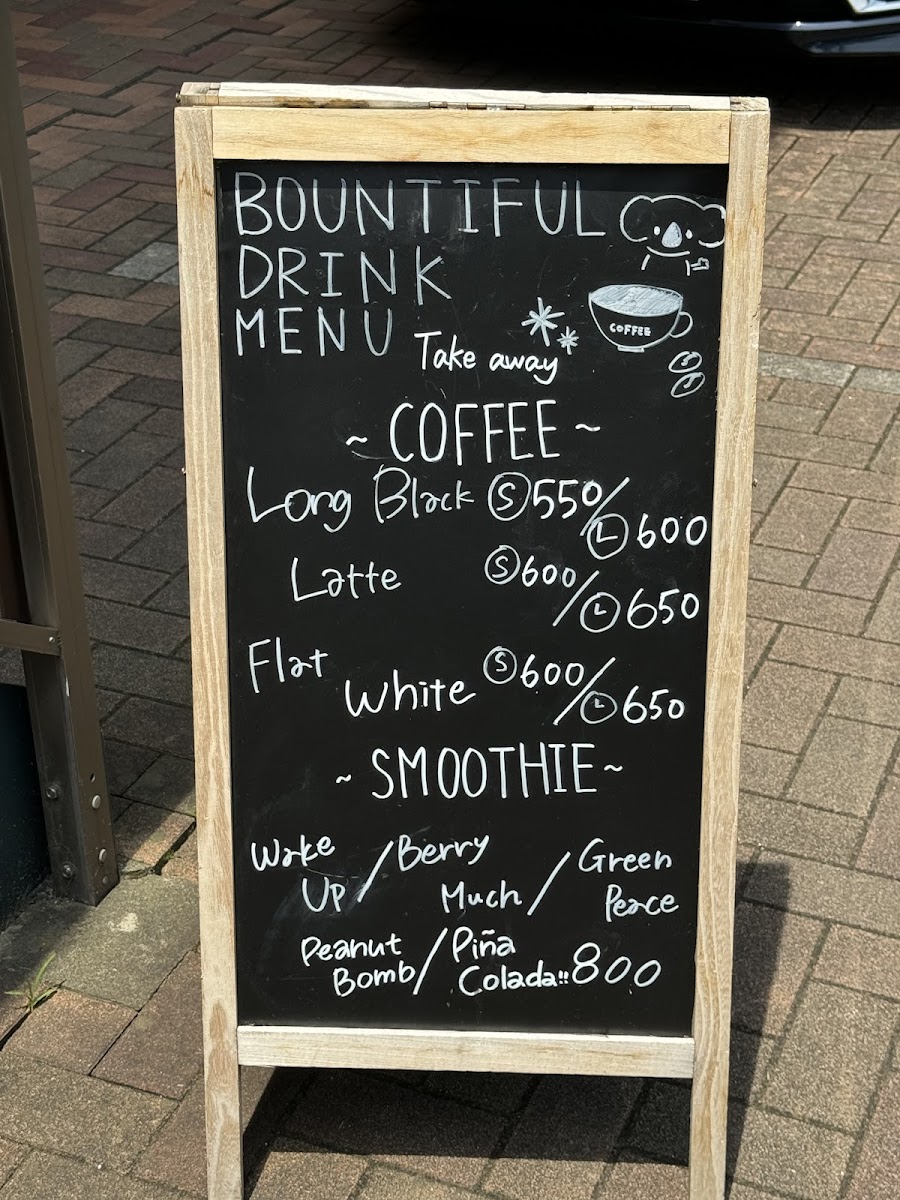 BOUNTIFUL
DRINK
MENU
Take away
COFFEE
~ COFFEE ~
Long Black Ⓢ550/
Ⓛ600
Latte Ⓢ600/
Ⓛ650
Flat
White Ⓢ600/
Ⓛ650
~ SMOOTHIE ~
Wake
Up / Berry
Much / Green
Peace
Peanut
Bomb / Piña
Colada!! 800